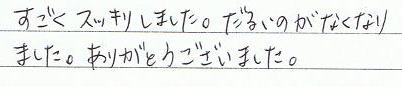 すごくスッキリしました。だるいのがなくなり
ました。ありがとうございました。